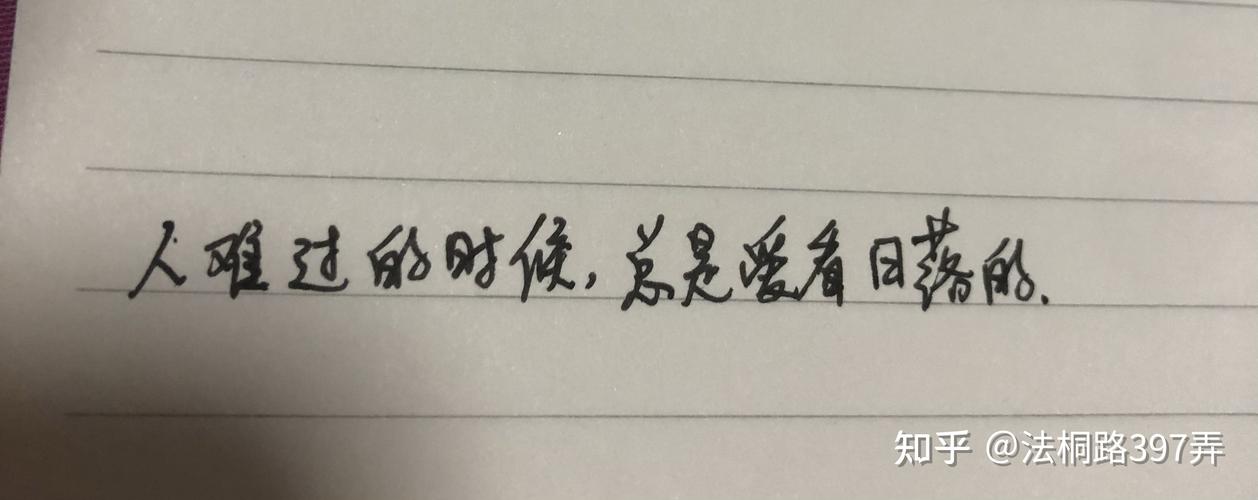 人难过的时候，总是爱看日落的.
知乎 @法桐路397弄